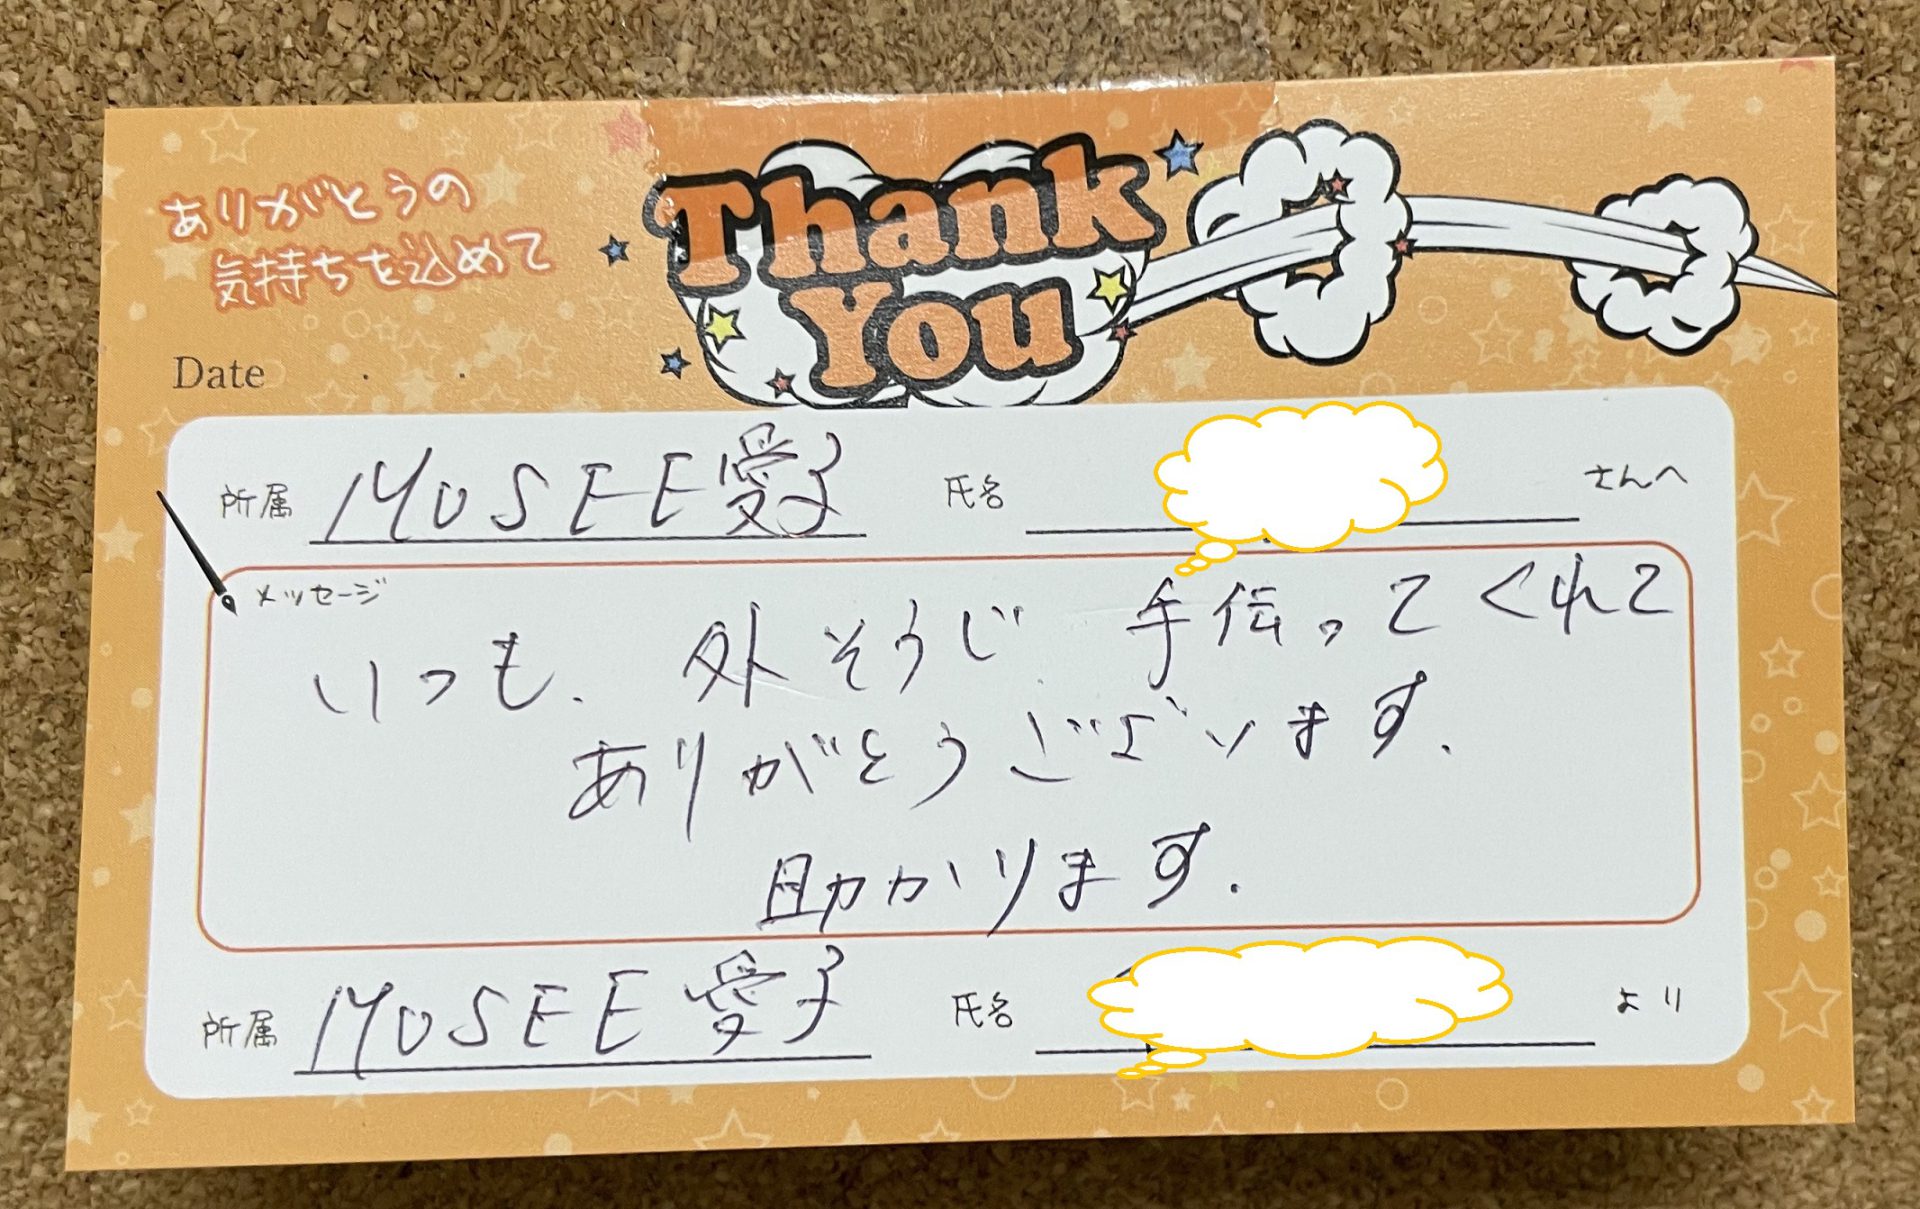 ありがとうの
気持ちを込めて
Thank
You
Date . .
所属 MUSEE愛子 氏名 さんへ
メッセージ
いつも、外そうじ、手伝ってくれて
ありがとうございます。
助かります。
所属 MUSEE愛子 氏名 より